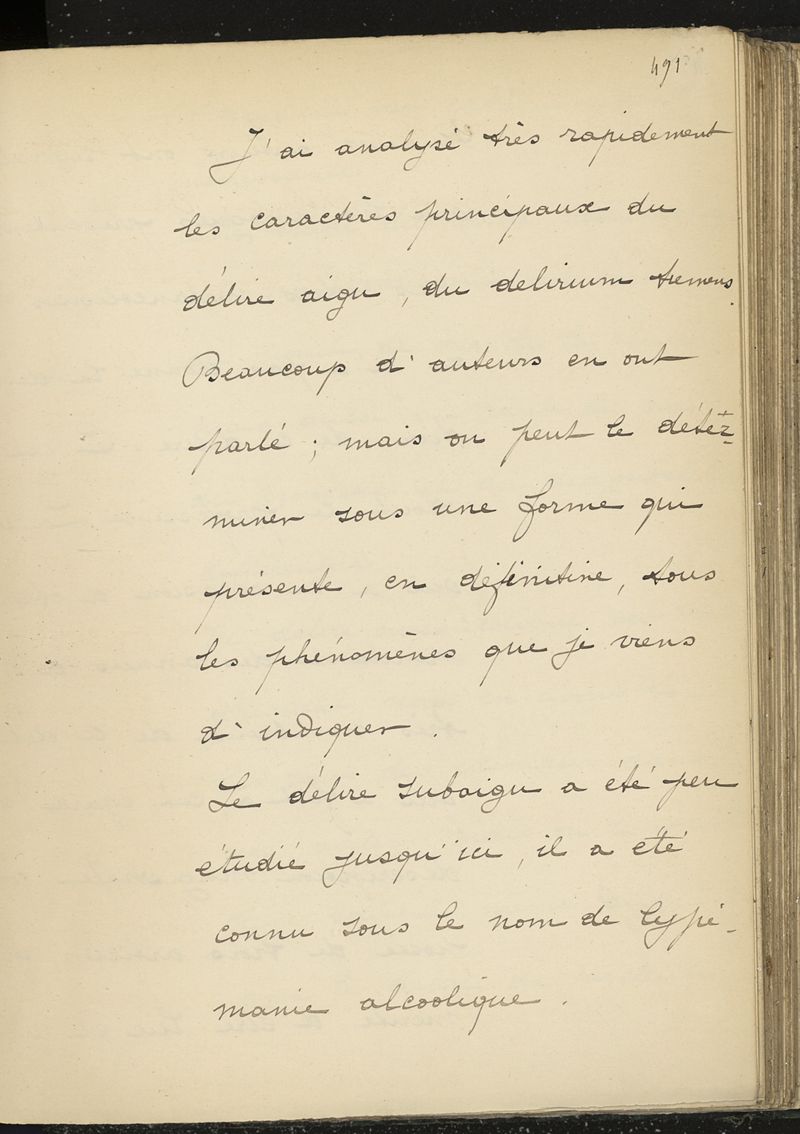 491
J'ai analysé très rapidement
les caractères principaux du
délire aigu, du delirium tremens.
Beaucoup d'auteurs en ont
parlé ; mais on peut le déter-
miner sous une forme qui
présente, en définitive, tous
les phénomènes que je viens
d'indiquer.
Le délire subaigu a été peu
étudié jusqu'ici, il a été
connu sous le nom de lypé-
manie alcoolique.